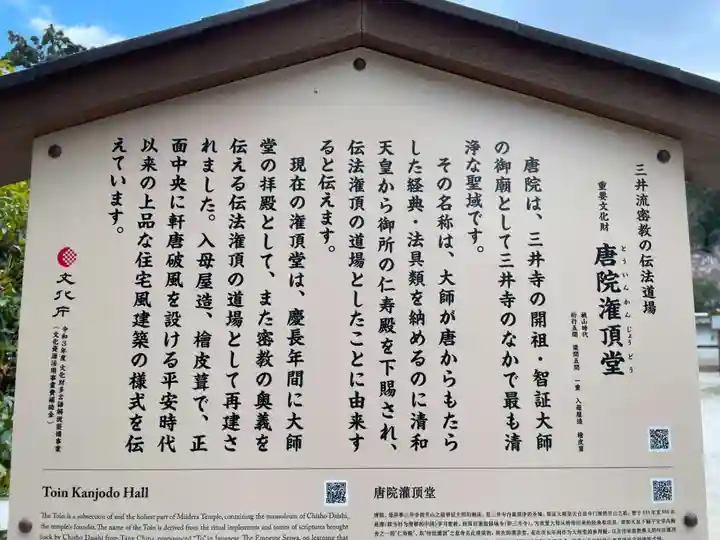 三井流密教の伝法道場
重要文化財
唐院潅頂堂
とういんかんじょうどう
桃山時代
桁行五間 梁間五間 一重 入母屋造 檜皮葺
唐院は、三井寺の開祖・智証大師
の御廟として三井寺のなかで最も清
浄な聖域です。
その名称は、大師が唐からもたら
した経典・法具類を納めるのに清和
天皇から御所の仁寿殿を下賜され、
伝法潅頂の道場としたことに由来す
ると伝えます。
現在の潅頂堂は、慶長年間に大師
堂の拝殿として、また密教の奥義を
伝える伝法潅頂の道場として再建さ
れました。入母屋造、檜皮葺で、正
面中央に軒唐破風を設ける平安時代
以来の上品な住宅風建築の様式を伝
えています。
文化庁
令和3年度 文化財多言語解説整備事業
(文化資源活用事業費補助金)
Toin Kanjodo Hall
The Toin is a subsection of and the holiest part of Miidera Temple, containing the mausoleum of Chisho Daishi,
the temple's founder. The name of the Toin is derived from the ritual implements and tomes of scriptures brought
back by Chisho Daishi from Tang China, pronounced "To" in Japanese. The Emperor Seiwa, on learning that
唐院灌頂堂